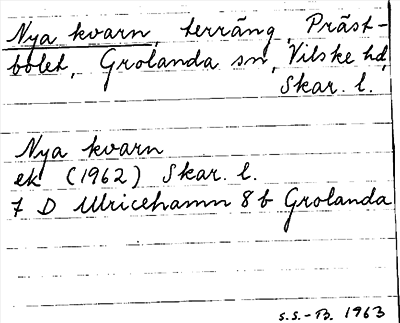 Nya kvarn, terräng, Präst-
bolet, Grolanda sn, Vilske hd,
Skar. l.
Nya kvarn
ek (1962) Skar. l.
7 D Ulricehamn 8 b Grolanda
S.S.-B. 1963